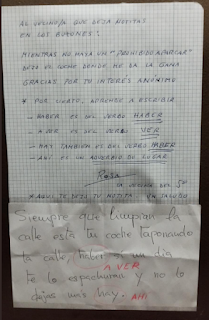 AL VECINO/A QUE DEJA NOTITAS
EN LOS BUZONES:
MIENTRAS NO HAYA UN "PROHIBIDO APARCAR"
DEJO EL COCHE DONDE ME DA LA GANA
GRACIAS POR TU INTERÉS ANÓNIMO
* POR CIERTO, APRENDE A ESCRIBIR
- HABER ES DEL VERBO HABER
- A VER ES DEL VERBO VER
- HAY TAMBIÉN ES DEL VERBO HABER
- AHÍ ES UN ADVERBIO DE LUGAR
ROSA
LA VECINA DEL 5º
* AQUÍ TE DEJO TU NOTITA
Siempre que limpian la
calle está tu coche taponando
la calle, haber si un día
A VER
te lo espachurran y no lo
dejas más hay. AHÍ